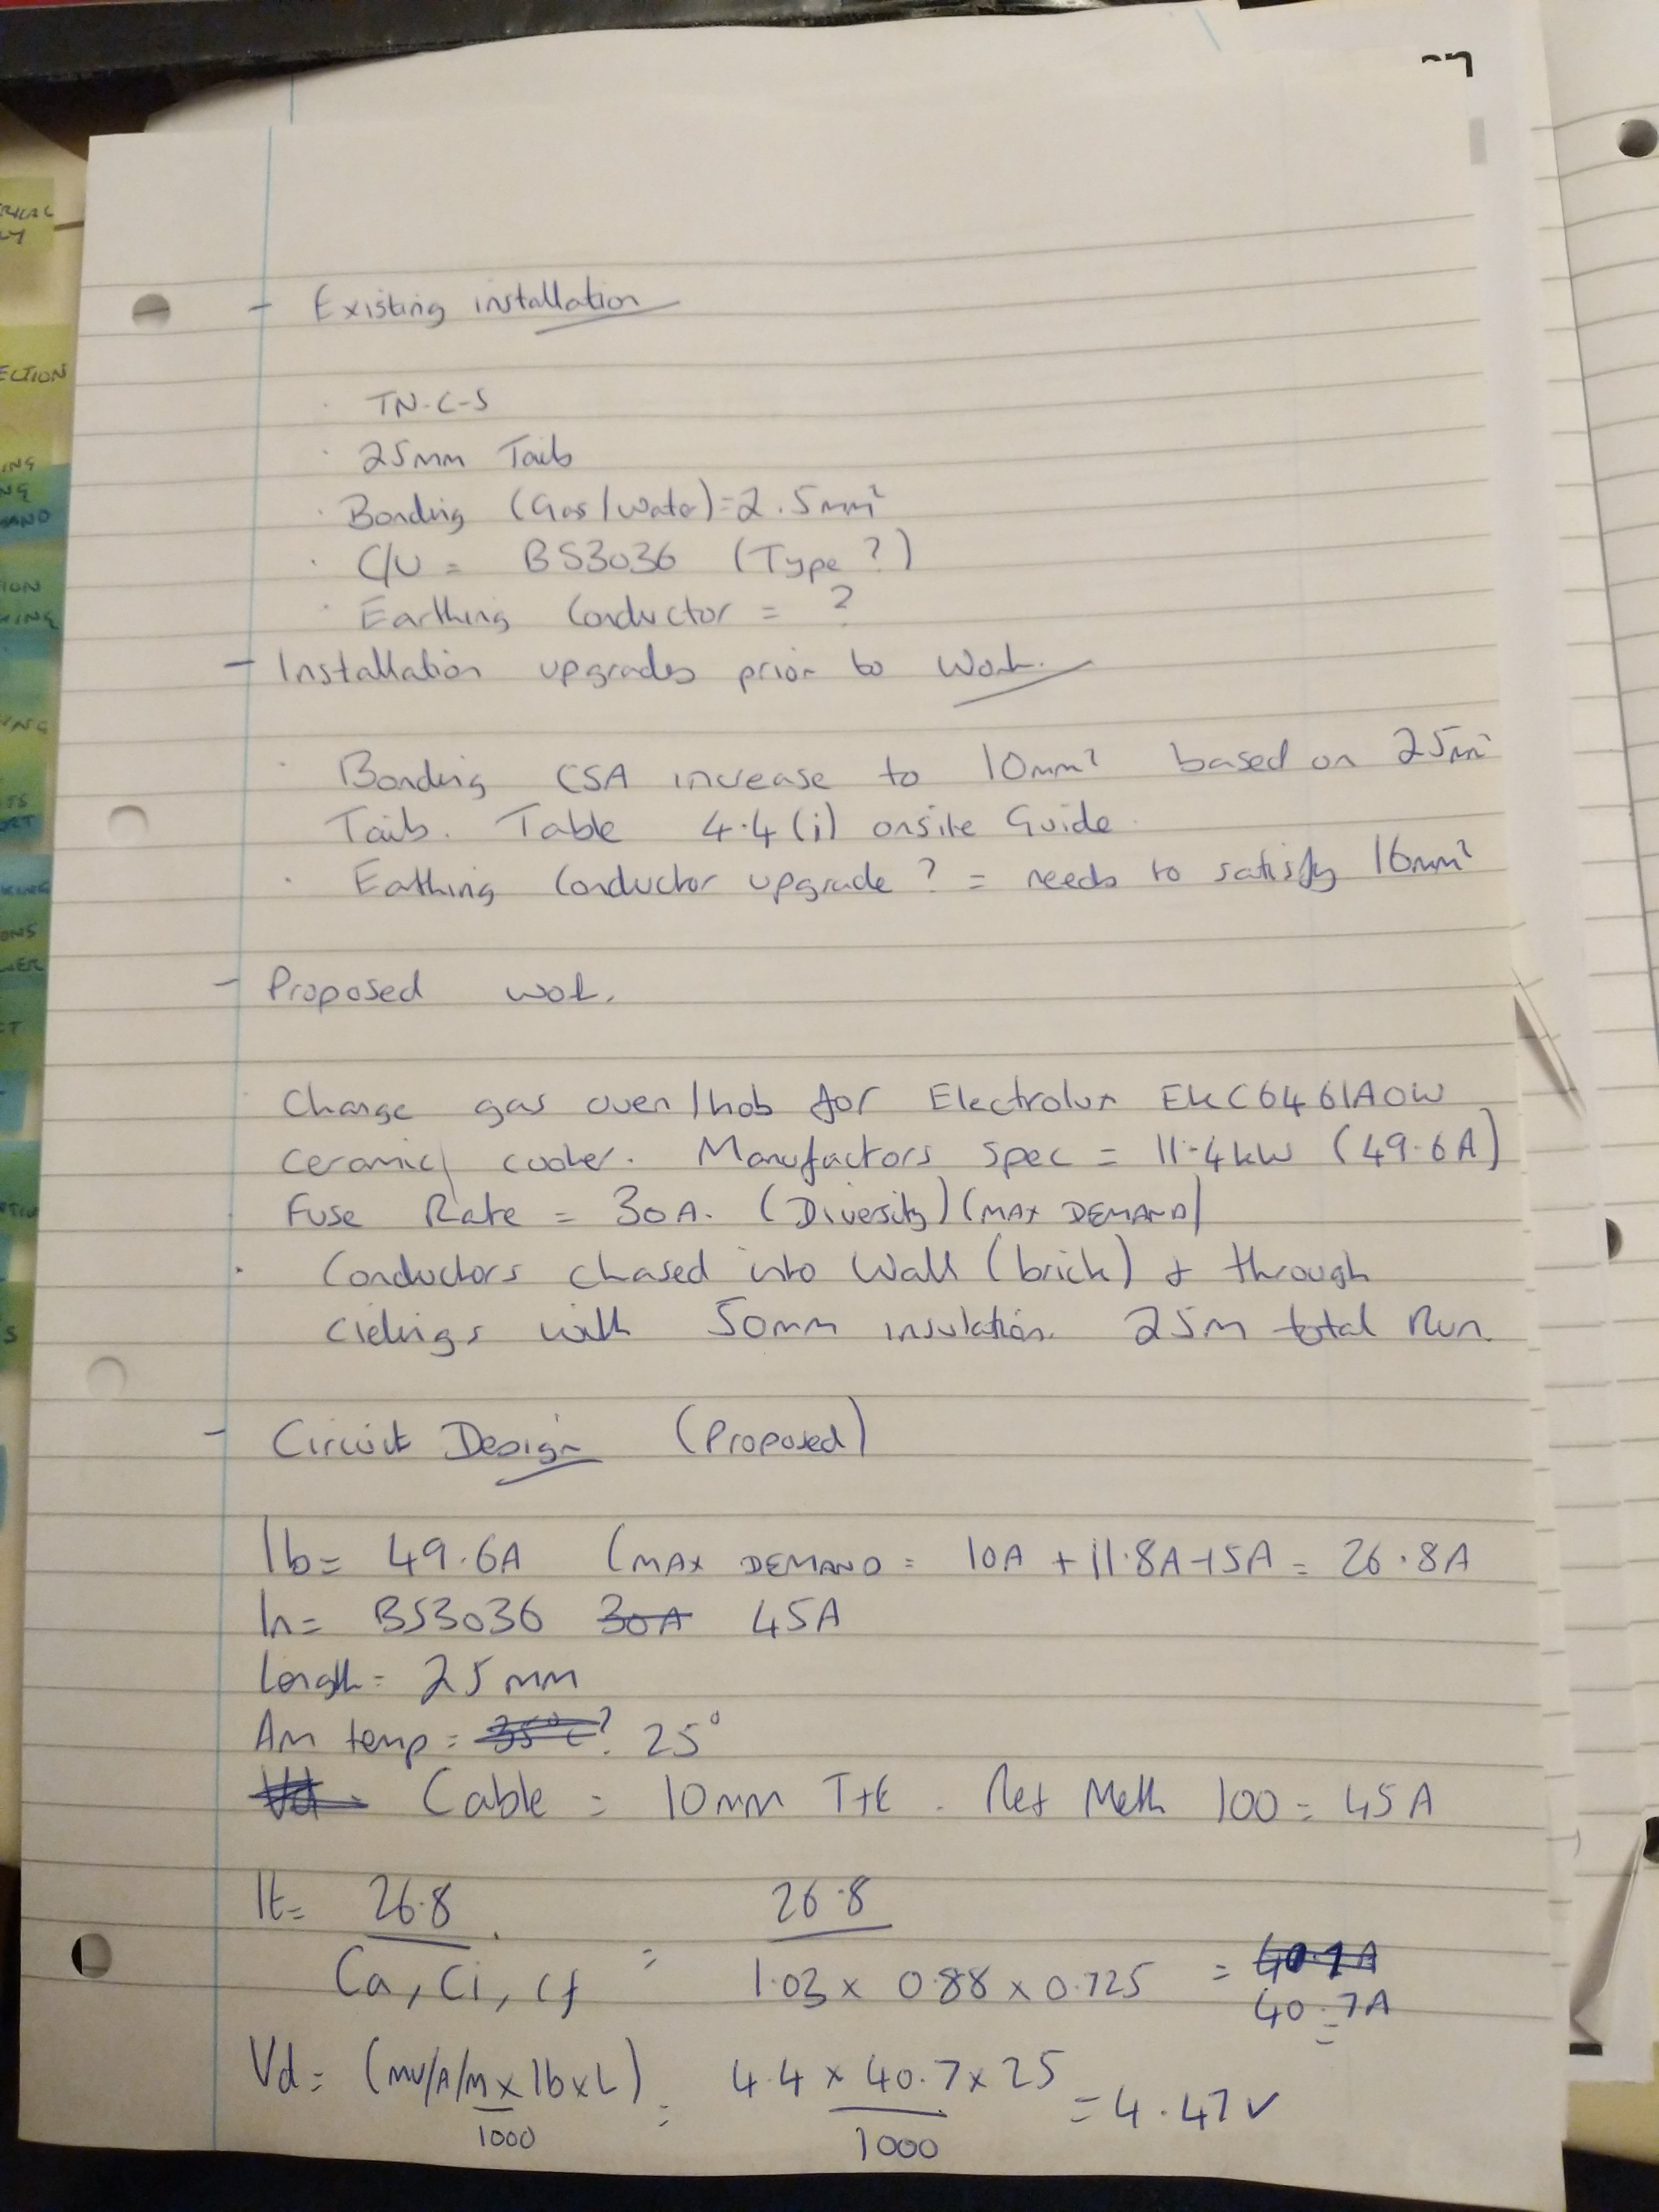 - Existing installation
· TN-C-S
· 25mm Tails
· Bonding (Gas/Water)=2.5mm²
· C/U = BS3036 (Type?)
· Earthing Conductor = ?
- Installation upgrades prior to Work.
· Bonding CSA increase to 10mm² based on 25mm²
Tails. Table 4.4(i) onsite Guide.
· Eathing Conductor upgrade? = needs to satisfy 16mm²
- Proposed wok.
Change gas oven/hob for Electrolux EKC6461AOW
ceramic cooker. Manufactors spec = 11.4kW (49.6A)
Fuse Rate = 30A. (Diversity)(MAX DEMAND)
· Conductors chased into Wall (brick) & through
cielings with 50mm insulation. 25m total Run.
- Circuit Design (Proposed)
Ib= 49.6A (MAX DEMAND = 10A + 11.8A+5A = 26.8A
In= BS3036 30A 45A
Length= 25mm
Am temp= 35°C? 25°
Vd Cable = 10mm T+E. Ref Meth 100 = 45A
It= 26.8 = 26.8
Ca, Ci, Cf 1.03 x 0.88 x 0.725 = 40.7A
Vd= (mV/A/m x Ib x L) = 4.4 x 40.7 x 25 = 4.47v
1000 1000